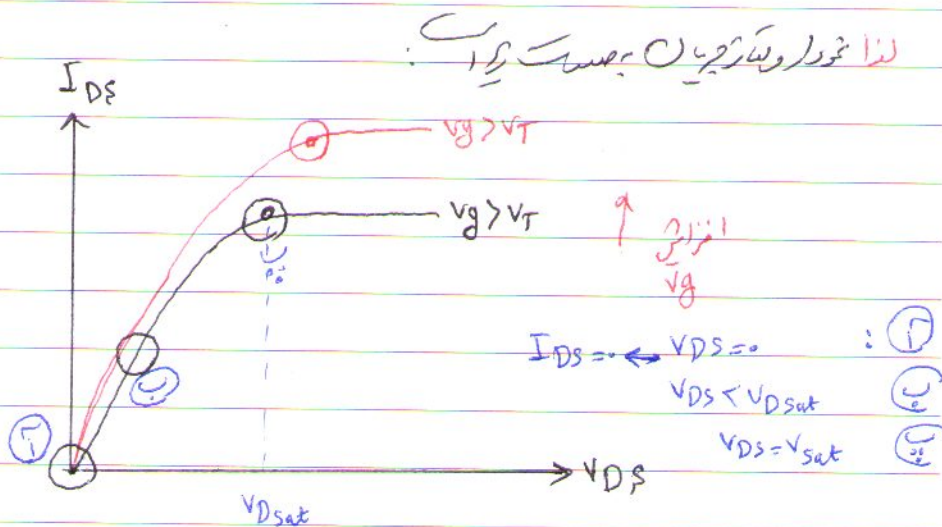 لذا نمودار ولتاژ جریان بصورت زیر است :
I_DS
Vg > V_T
Vg > V_T
افزایش
Vg
آ : V_DS = ۰ ↔ I_DS = ۰
ب V_DS < V_Dsat
پ V_DS = V_sat
پ
ب
آ
V_DS
V_Dsat